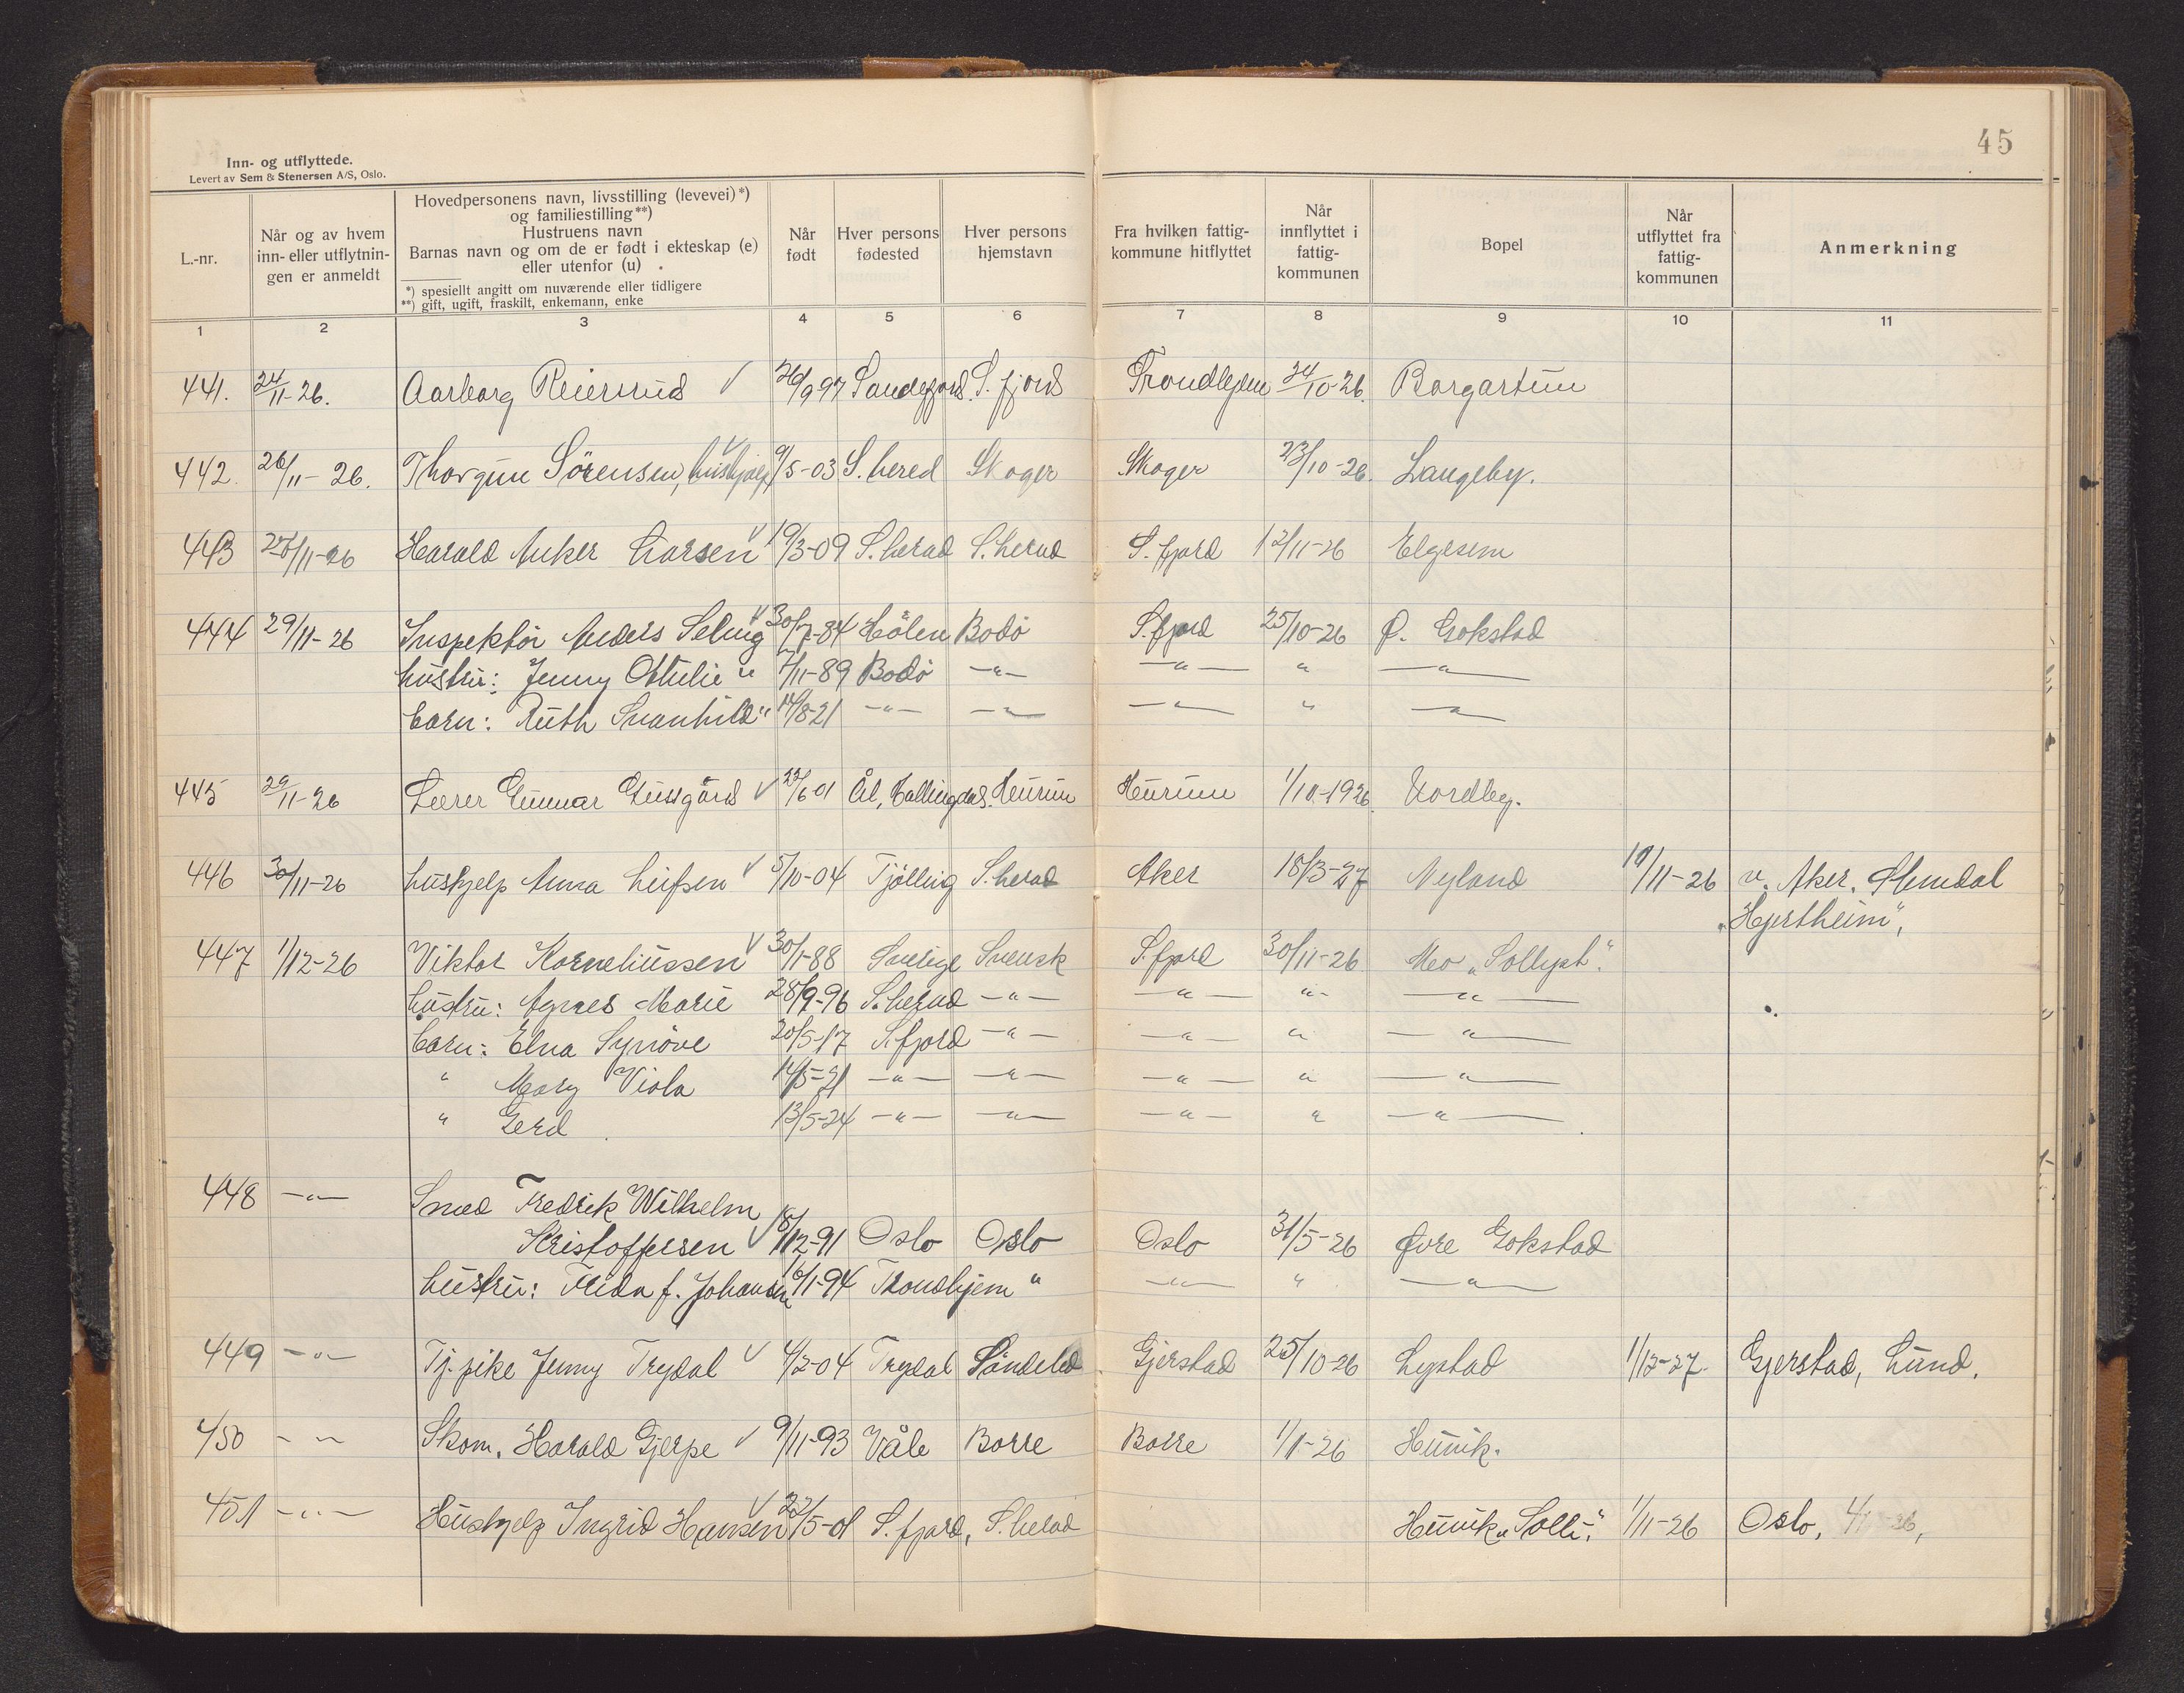 45
Inn- og utflyttede.
Levert av Sem & Stenersen A/S, Oslo.
L.-nr.
Når og av hvem
inn- eller utflytnin-
gen er anmeldt
Hovedpersonens navn, livsstilling (levevei)*)
og familiestilling**)
Hustruens navn
Barnas navn og om de er født i ekteskap (e)
eller utenfor (u)
*) spesiellt angitt om nuværende eller tidligere
**) gift, ugift, fraskilt, enkemann, enke
Når
født
Hver persons
fødested
Hver persons
hjemstavn
Fra hvilken fattig-
kommune hitflyttet
Når
innflyttet i
fattig-
kommunen
Bopel
Når
utflyttet fra
fattig-
kommunen
Anmerkning
1 2 3 4 5 6 7 8 9 10 11
441. 24/11-26. Aarborg Reiersrud √ 26/9 97 Sandefjord. S. fjord Trondhjem 24/10-26. Borgartun
442. 26/11-26. Thorgun Sörensen, hushjelp √ 9/5-03 S. hered Skoger Skoger 23/10-26. Langeby.
443 /11-26 Harald Anker Larsen √ 19/3-09 S. herad S. herad S. fjord 12/11-26 Elgesem
444 29/11-26 Inspektör Anders √ 30/7-84 Hölen Bodö S. fjord 25/10-26 Ø. Gokstad
hustru: Jenny Ottilie " 7/11-89 Bodö -"- -"- " -"-
barn: Ruth Svanhild " 14/8-21 -"- -"- -"- " -"-
445 29/11-26 Lærer Gunnar √ 22/6 01 Ål, Hallingdal. Hurum Hurum 1/10-1926. Nordby.
446 30/11-26 hushjelp Anna Leifsen √ 5/10-04 Tjölling S. herad Aker 18/3-27 Nyland 10/11-26 v. Aker. Slemdal
"Hjertheim",
447 1/12-26 Viktor Korneliussen √ 30/1-88 Sverige Svensk S. fjord 30/11-26 Mo "Sollyst".
hustru: Agnes Marie 28/9-96 S. herad -"- -"- "- -"-
barn: Elna Synöve 20/5-17 S. fjord -"- -"- " -"-
" Mary Viola 14/5-21 -"- -"- -"- " -"-
" Gerd. 13/5-24 -"- -"- -"- " -"-
448 -"- Smed Fredrik Wilhelm
Kristoffersen √ 18/12-91 Oslo Oslo Oslo 31/5-26 Øvre Gokstad
hustru: Frida f. Johansen 6/1-94 Trondhjem " -"- " -"-
449 -"- Tj. pike Jenny Trydal √ 4/2-04 Trydal Söndeled Gjerstad 25/10-26 Lystad 1/12-27. Gjerstad, Lund.
450 - " - Skom. Harald Gjerpe √ 9/11-93 Våle Borre Borre 1/1-26 Hunik.
451 -"- Hushjelp Ingrid Hansen √ 22/5-01 S. fjord, S. herad Hunik "Solli". 1/11-26 Oslo,